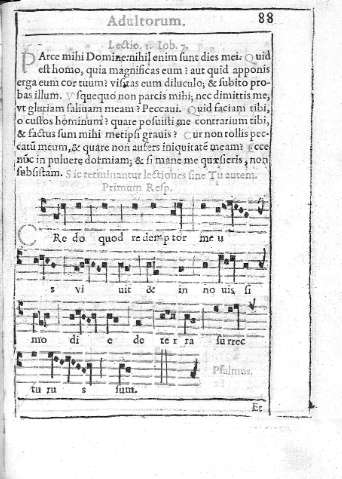 Adultorum. 88
Lectio. 1. Iob. 7.
PArce mihi Domine: nihil enim sunt dies mei. Quid
est homo, quia magnificas eum? aut quid apponis
erga eum cor tuum? visitas eum diluculo; & subito pro-
bas illum. Vsquequo non parcis mihi; nec dimittis me,
vt glutiam saliuam meam? Peccaui. Quid faciam tibi,
o custos hominum? quare posuisti me contrarium tibi,
& factus sum mihi metipsi grauis? Cur non tollis pec-
catū meum, & quare non aufers iniquitatē meam? Ecce
nūc in puluere dormiam; & si mane me quæsieris, non
subsistam. Sic terminantur lectiones sine Tu autem.
Primum Resp.
CRe do quod re demp tor me u
s vi uit & in no uis si
mo di e de ter ra sur rec
tu ru s sum. Psalmus.
Et